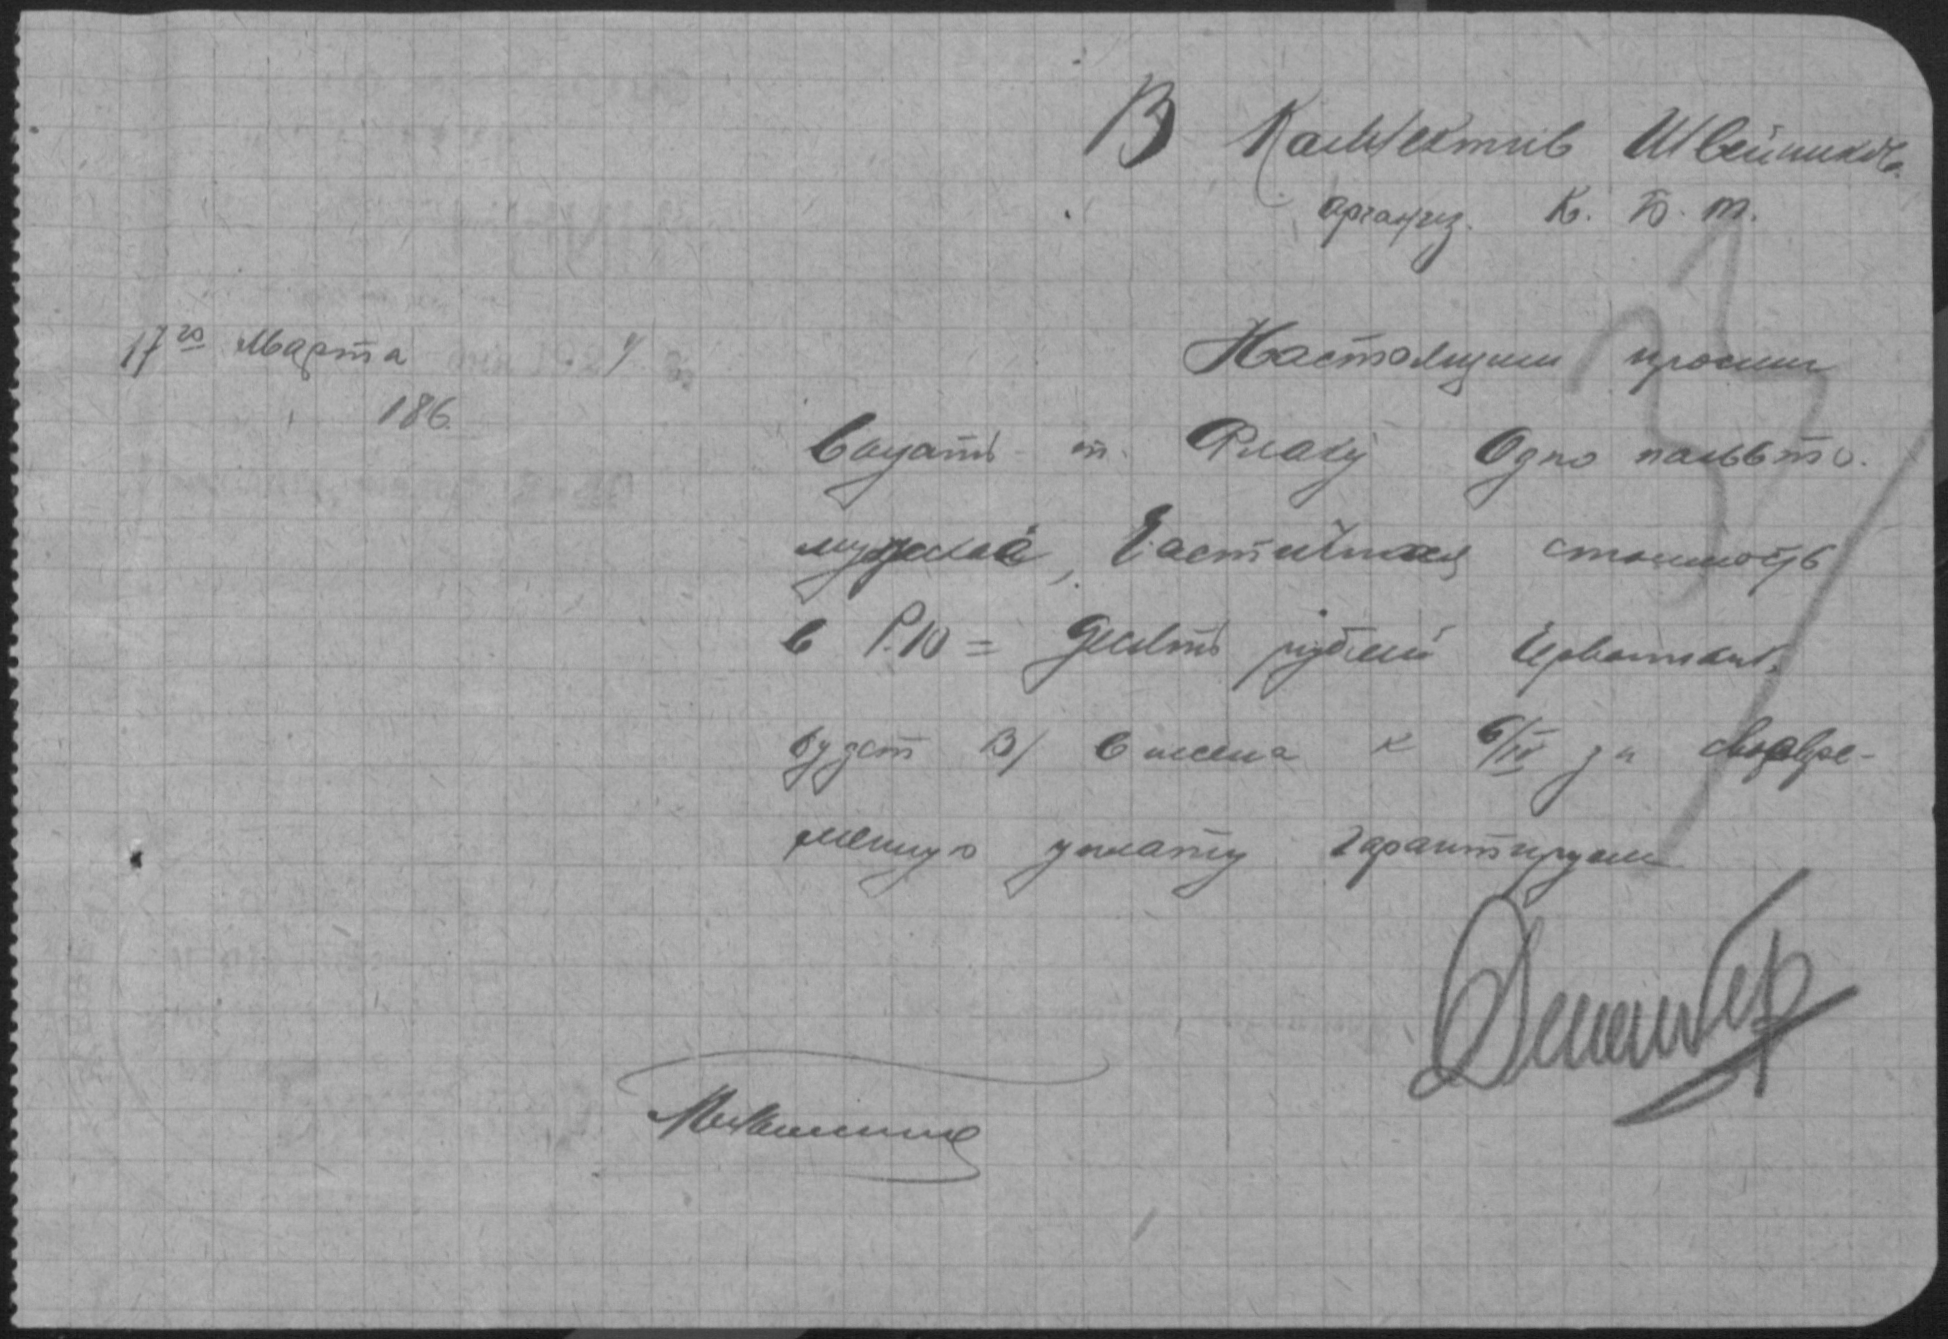 В Коллектив Швейников
организ. К. Б. т.
17го Марта
186
Настоящим просим
выдать т. Флаку Одно пальто
мужское, Частичная стоимость
в Р.10 = Десять рублей Червонная.
будет В/ внесена к 6/IV за своевре-
менную уплату гарантируем